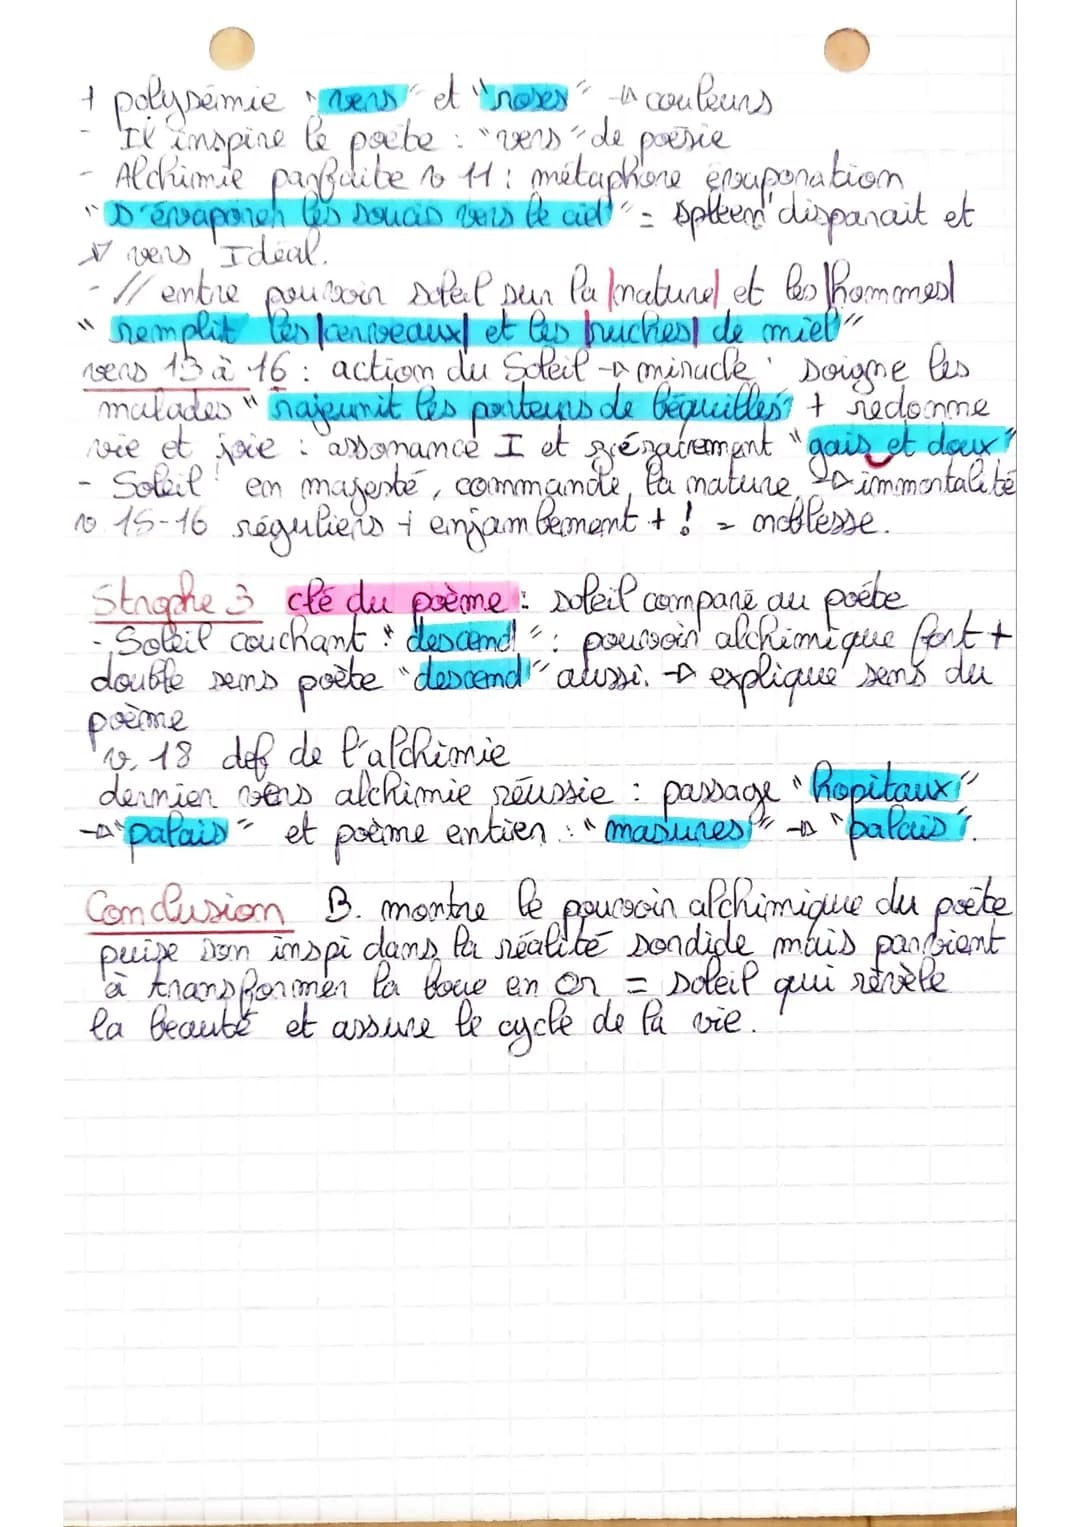 + polysémie "vers" et "roses" → couleurs
- Il inspire le poète : "vers" de poésie
- Alchimie parfaite v 11 : métaphore évaporation
"D'évaporer les soucis vers le ciel" = Spleen disparait et
→ vers Idéal.
- // entre pouvoir soleil sur la |nature| et les |hommes|
"remplit les |cerveaux| et les |ruches| de miel"
vers 13 à 16 : action du Soleil → miracle : soigne les
malades "rajeunit les porteurs de béquilles" + redonne
vie et joie : assonance I et "gais et doux"
- Soleil : en majesté, commande la nature → immortalité
v 15-16 réguliers + enjambement + ! = noblesse.
Strophe 3 clé du poème : soleil comparé au poète
- Soleil couchant : "descend" : pouvoir alchimique fort +
double sens poète "descend" aussi. → explique sens du
poème
v. 18 def de l'alchimie
dernier vers alchimie réussie : passage "hopitaux"
→ "palais" et poème entier : "masures" → "palais".
Conclusion B. montre le pouvoir alchimique du poète
puise son inspi dans la réalité sordide mais parvient
à transformer la boue en or = soleil qui révèle
la beauté et assure le cycle de la vie.